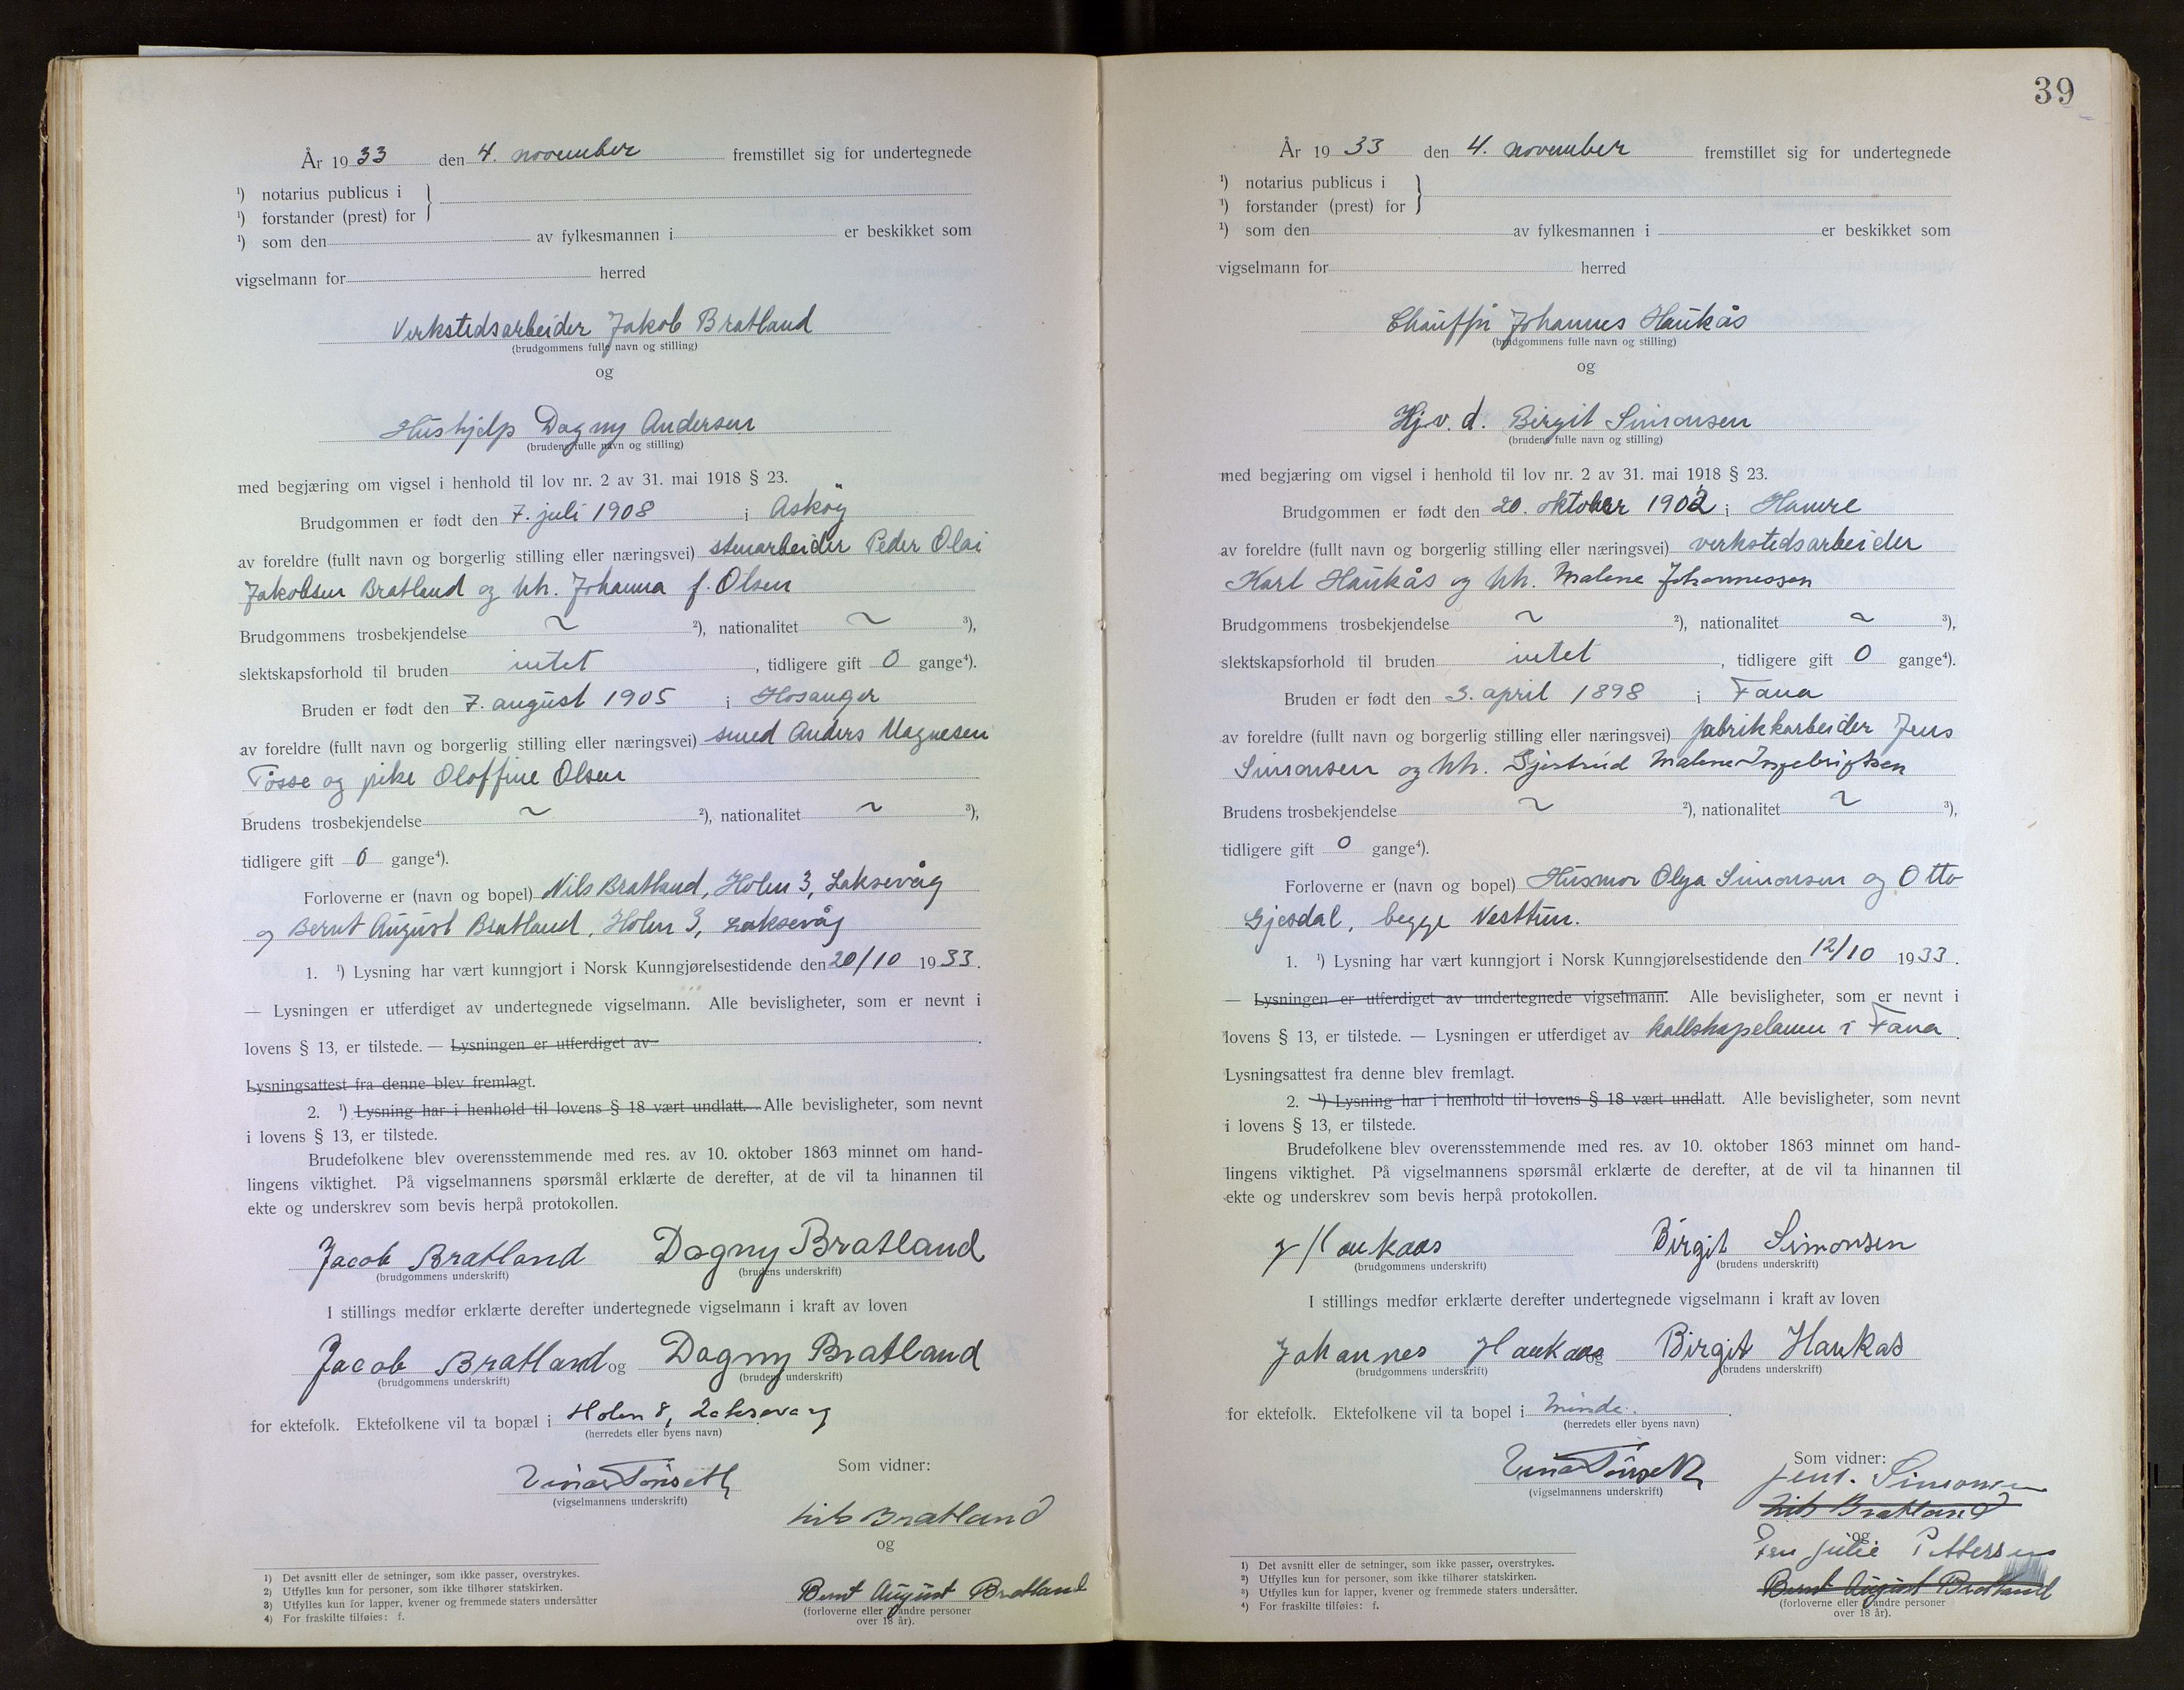 År 1933 den 4. november fremstillet sig for undertegnede
¹) notarius publicus i
¹) forstander (prest) for
¹) som den av fylkesmannen i er beskikket som
vigselmann for herred
Verkstedsarbeider Jakob Bratland
(brudgommens fulle navn og stilling)
og
Hushjelp Dagny Andersen
(brudens fulle navn og stilling)
med begjæring om vigsel i henhold til lov nr. 2 av 31. mai 1918 § 23.
Brudgommen er født den 7. juli 1908 i Askøy
av foreldre (fullt navn og borgerlig stilling eller næringsvei) stenarbeider Peder Olai
Jakobsen Bratland og hh. Johanna f. Olsen
Brudgommens trosbekjendelse ~ ²), nationalitet ~ ³),
slektskapsforhold til bruden intet, tidligere gift 0 gange⁴).
Bruden er født den 7. august 1905 i Hosanger
av foreldre (fullt navn og borgerlig stilling eller næringsvei) smed Anders Magnesen
Tösse og pike Oloffine Olsen
Brudens trosbekjendelse ~ ²), nationalitet ~ ³),
tidligere gift 0 gange⁴).
Forloverne er (navn og bopel) Nils Bratland, Holen 3, Laksevåg
og Bernt August Bratland, Holen 3, Laksevåg
1. ¹) Lysning har vært kunngjort i Norsk Kunngjørelsestidende den 20/10 1933.
— Lysningen er utferdiget av undertegnede vigselmann. Alle bevisligheter, som er nevnt i
lovens § 13, er tilstede. — Lysningen er utferdiget av .
Lysningsattest fra denne blev fremlagt.
2. ¹) Lysning har i henhold til lovens § 18 vært undlatt. Alle bevisligheter, som nevnt
i lovens § 13, er tilstede.
Brudefolkene blev overensstemmende med res. av 10. oktober 1863 minnet om hand-
lingens viktighet. På vigselmannens spørsmål erklærte de derefter, at de vil ta hinannen til
ekte og underskrev som bevis herpå protokollen.
Jacob Bratland Dagny Bratland
(brudgommens underskrift) (brudens underskrift)
I stillings medfør erklærte derefter undertegnede vigselmann i kraft av loven
Jacob Bratland og Dagny Bratland
(brudgommens underskrift) (brudens underskrift)
for ektefolk. Ektefolkene vil ta bopæl i Holen 8, Laksevaag
(herredets eller byens navn)
Einar Tönseth
(vigselmannens underskrift)
Som vidner:
Nils Bratland
og
Bernt August Bratland
(forloverne eller 2 andre personer
over 18 år).
1) Det avsnitt eller de setninger, som ikke passer, overstrykes.
2) Utfylles kun for personer, som ikke tilhører statskirken.
3) Utfylles kun for lapper, kvener og fremmede staters undersåtter
4) For fraskilte tilføies: f.
39
År 1933 den 4. november fremstillet sig for undertegnede
¹) notarius publicus i
¹) forstander (prest) for
¹) som den av fylkesmannen i er beskikket som
vigselmann for herred
Chauffør Johannes Haukås
(brudgommens fulle navn og stilling)
og
Hj.v.d. Birgit Simonsen
(brudens fulle navn og stilling)
med begjæring om vigsel i henhold til lov nr. 2 av 31. mai 1918 § 23.
Brudgommen er født den 20. oktober 1902 i Hamre
av foreldre (fullt navn og borgerlig stilling eller næringsvei) verkstedsarbeider
Karl Haukås og hh. Malene Johannessen
Brudgommens trosbekjendelse ~ ²), nationalitet ~ ³),
slektskapsforhold til bruden intet, tidligere gift 0 gange⁴).
Bruden er født den 3. april 1898 i Fana
av foreldre (fullt navn og borgerlig stilling eller næringsvei) fabrikkarbeider Jens
Simonsen og hh. Gjertrud Malene Ingebrigtsen
Brudens trosbekjendelse ~ ²), nationalitet ~ ³),
tidligere gift 0 gange⁴).
Forloverne er (navn og bopel) Husmor Olga Simonsen og Otto
Gjesdal, begge Nesttun.
1. ¹) Lysning har vært kunngjort i Norsk Kunngjørelsestidende den 12/10 1933.
— Lysningen er utferdiget av undertegnede vigselmann. Alle bevisligheter, som er nevnt i
lovens § 13, er tilstede. — Lysningen er utferdiget av kallskapelanen i Fana.
Lysningsattest fra denne blev fremlagt.
2. ¹) Lysning har i henhold til lovens § 18 vært undlatt. Alle bevisligheter, som nevnt
i lovens § 13, er tilstede.
Brudefolkene blev overensstemmende med res. av 10. oktober 1863 minnet om hand-
lingens viktighet. På vigselmannens spørsmål erklærte de derefter, at de vil ta hinannen til
ekte og underskrev som bevis herpå protokollen.
J Haukaas Birgit Simonsen
(brudgommens underskrift) (brudens underskrift)
I stillings medfør erklærte derefter undertegnede vigselmann i kraft av loven
Johannes Haukaas og Birgit Haukas
(brudgommens underskrift) (brudens underskrift)
for ektefolk. Ektefolkene vil ta bopel i Minde.
(herredets eller byens navn)
Einar Tönseth
(vigselmannens underskrift)
Som vidner:
Jens. Simonsen
Nils Bratland
og
Fru Julie Pettersen
Bernt August Bratland
(forloverne eller 2 andre personer
over 18 år).
1) Det avsnitt eller de setninger, som ikke passer, overstrykes.
2) Utfylles kun for personer, som ikke tilhører statskirken.
3) Utfylles kun for lapper, kvener og fremmede staters undersåtter.
4) For fraskilte tilføies: f.